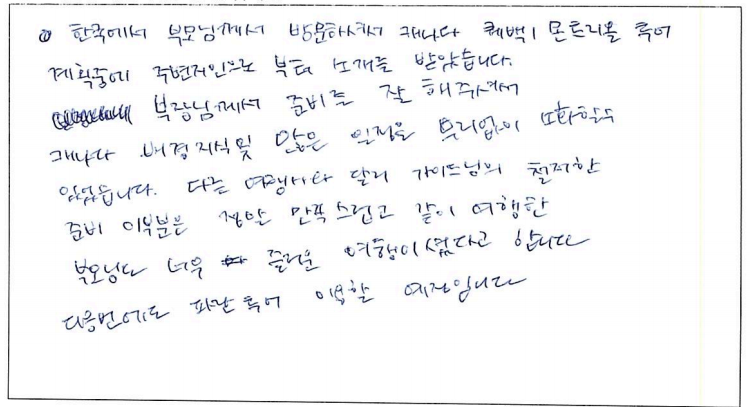 한국에서 부모님께서 방문하셔서 캐나다 퀘백, 몬트리올 투어
계획중에 주변지인으로 부터 소개를 받았습니다.
부장님께서 준비를 잘 해주셔서
캐나다 배경지식및 많은 일정을 무리없이 소화할수
있었습니다. 다른 여행사와 달리 가이드님의 철저한
준비 이부분은 정말 만족스럽고 같이 여행한
부모님도 너무 즐거운 여행이셨다고 합니다
다음번에도 파란투어 이용할 예정입니다